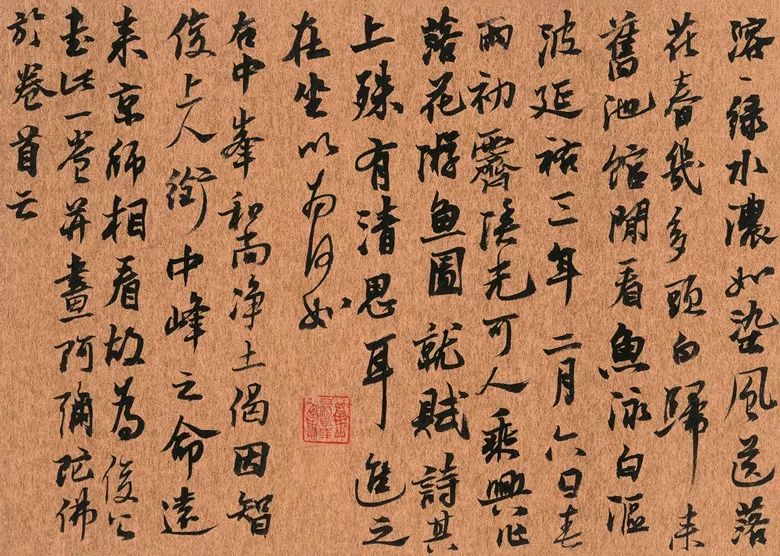 溶〻緑水濃如染風送落
花春幾多頭白歸来
舊池館閒看魚泳自漚
波延祐三年二月六日春
雨初霽溪光可人乘興作
落花游魚圖就賦詩其
上殊有清思耳進之
在坐以為何如
右中峯和尚净土偈因智
俊上人銜中峰之命遠
来京師相看故為俊公
書此一卷并畫阿彌陀佛
於卷首云